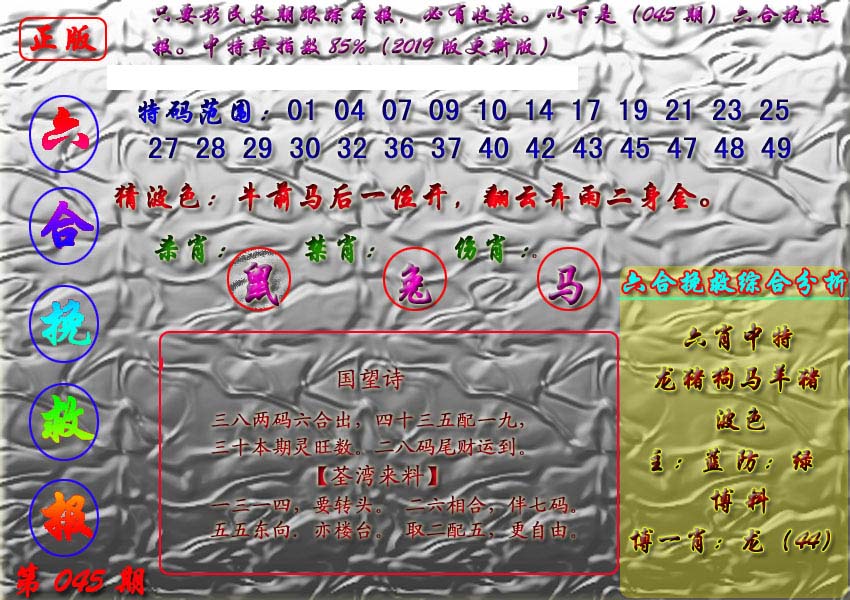 正版
只要彩民长期跟踪本报，必有收获。以下是（045期）六合挽救
报。中特率指数85%（2019版更新版）
六合挽救报
第045期
特码范围：01 04 07 09 10 14 17 19 21 23 25
27 28 29 30 32 36 37 40 42 43 45 47 48 49
猜波色：牛前马后一位开，翻云弄雨二身金。
杀肖：鼠 禁肖：兔 伤肖：。马
国望诗
三八两码六合出，四十三五配一九，
三十本期灵旺数。二八码尾财运到。
【荃湾来料】
一三一四，要转头。 二六相合，伴七码。
五五东向．亦楼台。 取二配五，更自由。
六合挽救综合分析
六肖中特
龙猪狗马羊猪
波色
主：蓝防：绿
博料
博一肖：龙（44）